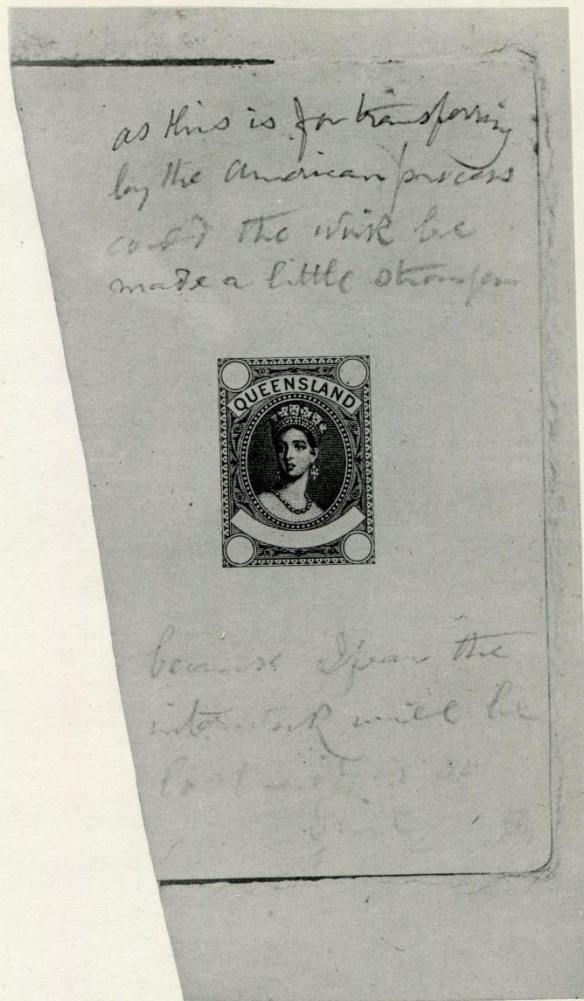 as this is for transferring
by the American process
could the work be
made a little stronger
QUEENSLAND
because I fear the
work will be
lost